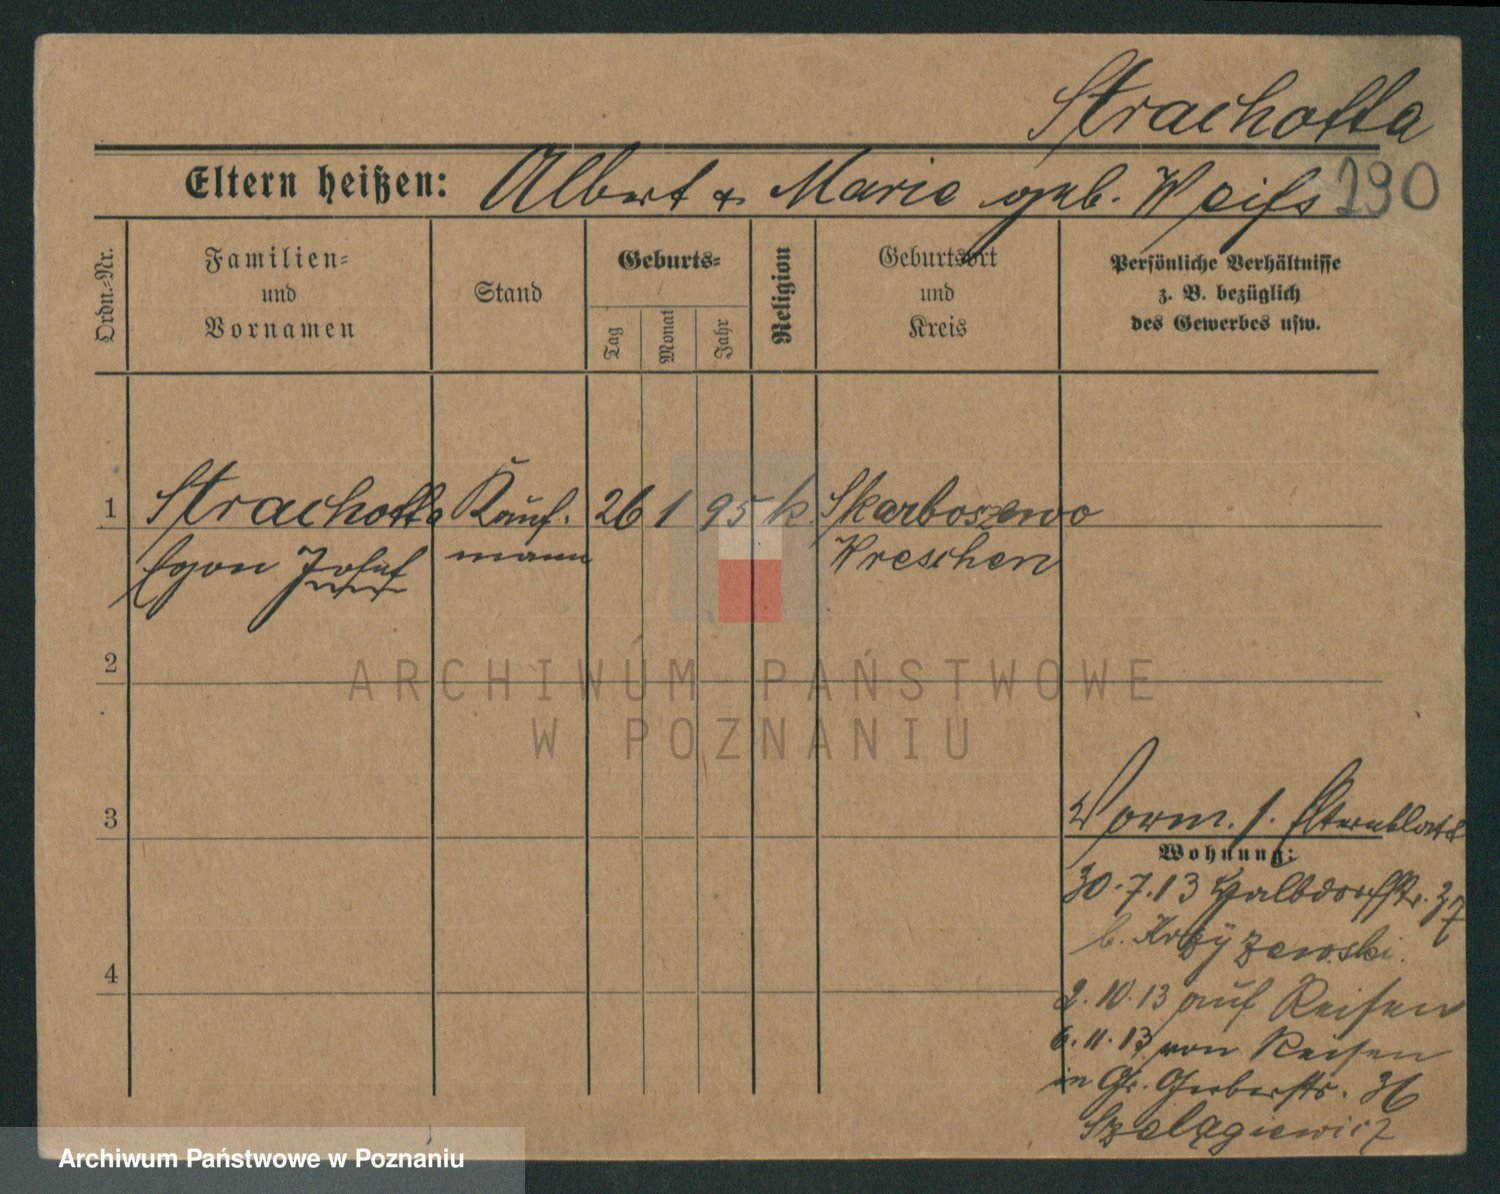 Strachotta
Eltern heißen: Albert & Marie geb. Weifs 290
Ordn.=Nr.
Familien=
und
Vornamen
Stand
Geburts=
Tag
Monat
Jahr
Religion
Geburtsort
und
Kreis
Persönliche Verhältnisse
z. B. bezüglich
des Gewerbes usw.
1 Strachotta Kauf. 26 1 95 k. Skarboszewo
Egon Josef mann Wreschen
2
ARCHIWUM PAŃSTWOWE
W POZNANIU
3
Vorm. s. Elternblatt
Wohnung:
30.7.13 Halbdorfstr. 37
b. Krzyżewski.
4
2.10.13 auf Reisen
6.11.13 von Reisen
in Gr. Gerberstr. 36
Szelągiewicz
Archiwum Państwowe w Poznaniu